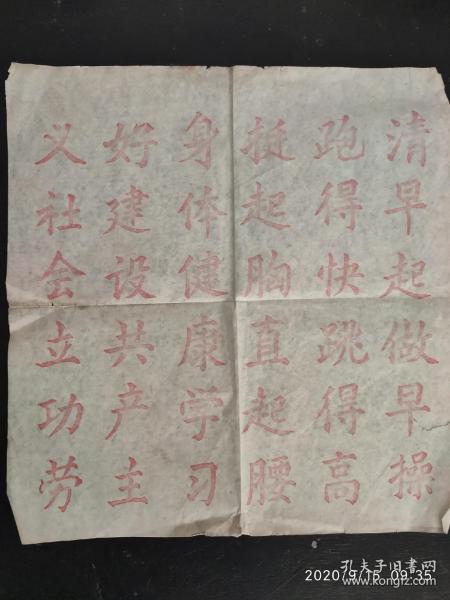 清早起做早操
跑得快跳得高
挺起胸直起腰
身体健康学习
好建设共产主
义社会立功劳
孔夫子旧书网
www.kongfz.com
2020/9/15 09:35